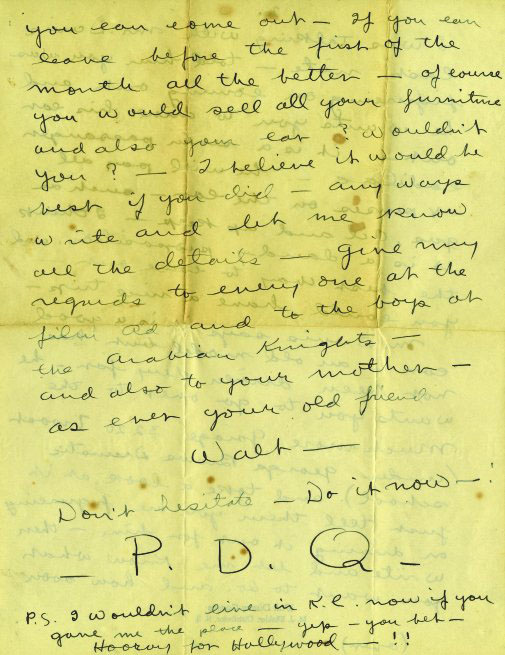 you can come out — If you can
leave before the first of the
month all the better — of course
you would sell all your furniture
and also your car ? Wouldn't
you ? — I believe it would be
best if you did — any ways
write and let me know
all the details — give my
regards to every one at the
film ad and to the boys at
the arabian Knights —
and also to your mother —
as ever your old friend
Walt —
Don't hesitate — Do it now — !
— P. D. Q —
P.S. I wouldn't live in K.C. now if you
gave me the place — yep — you bet —
Hooray for Hollywood — !!